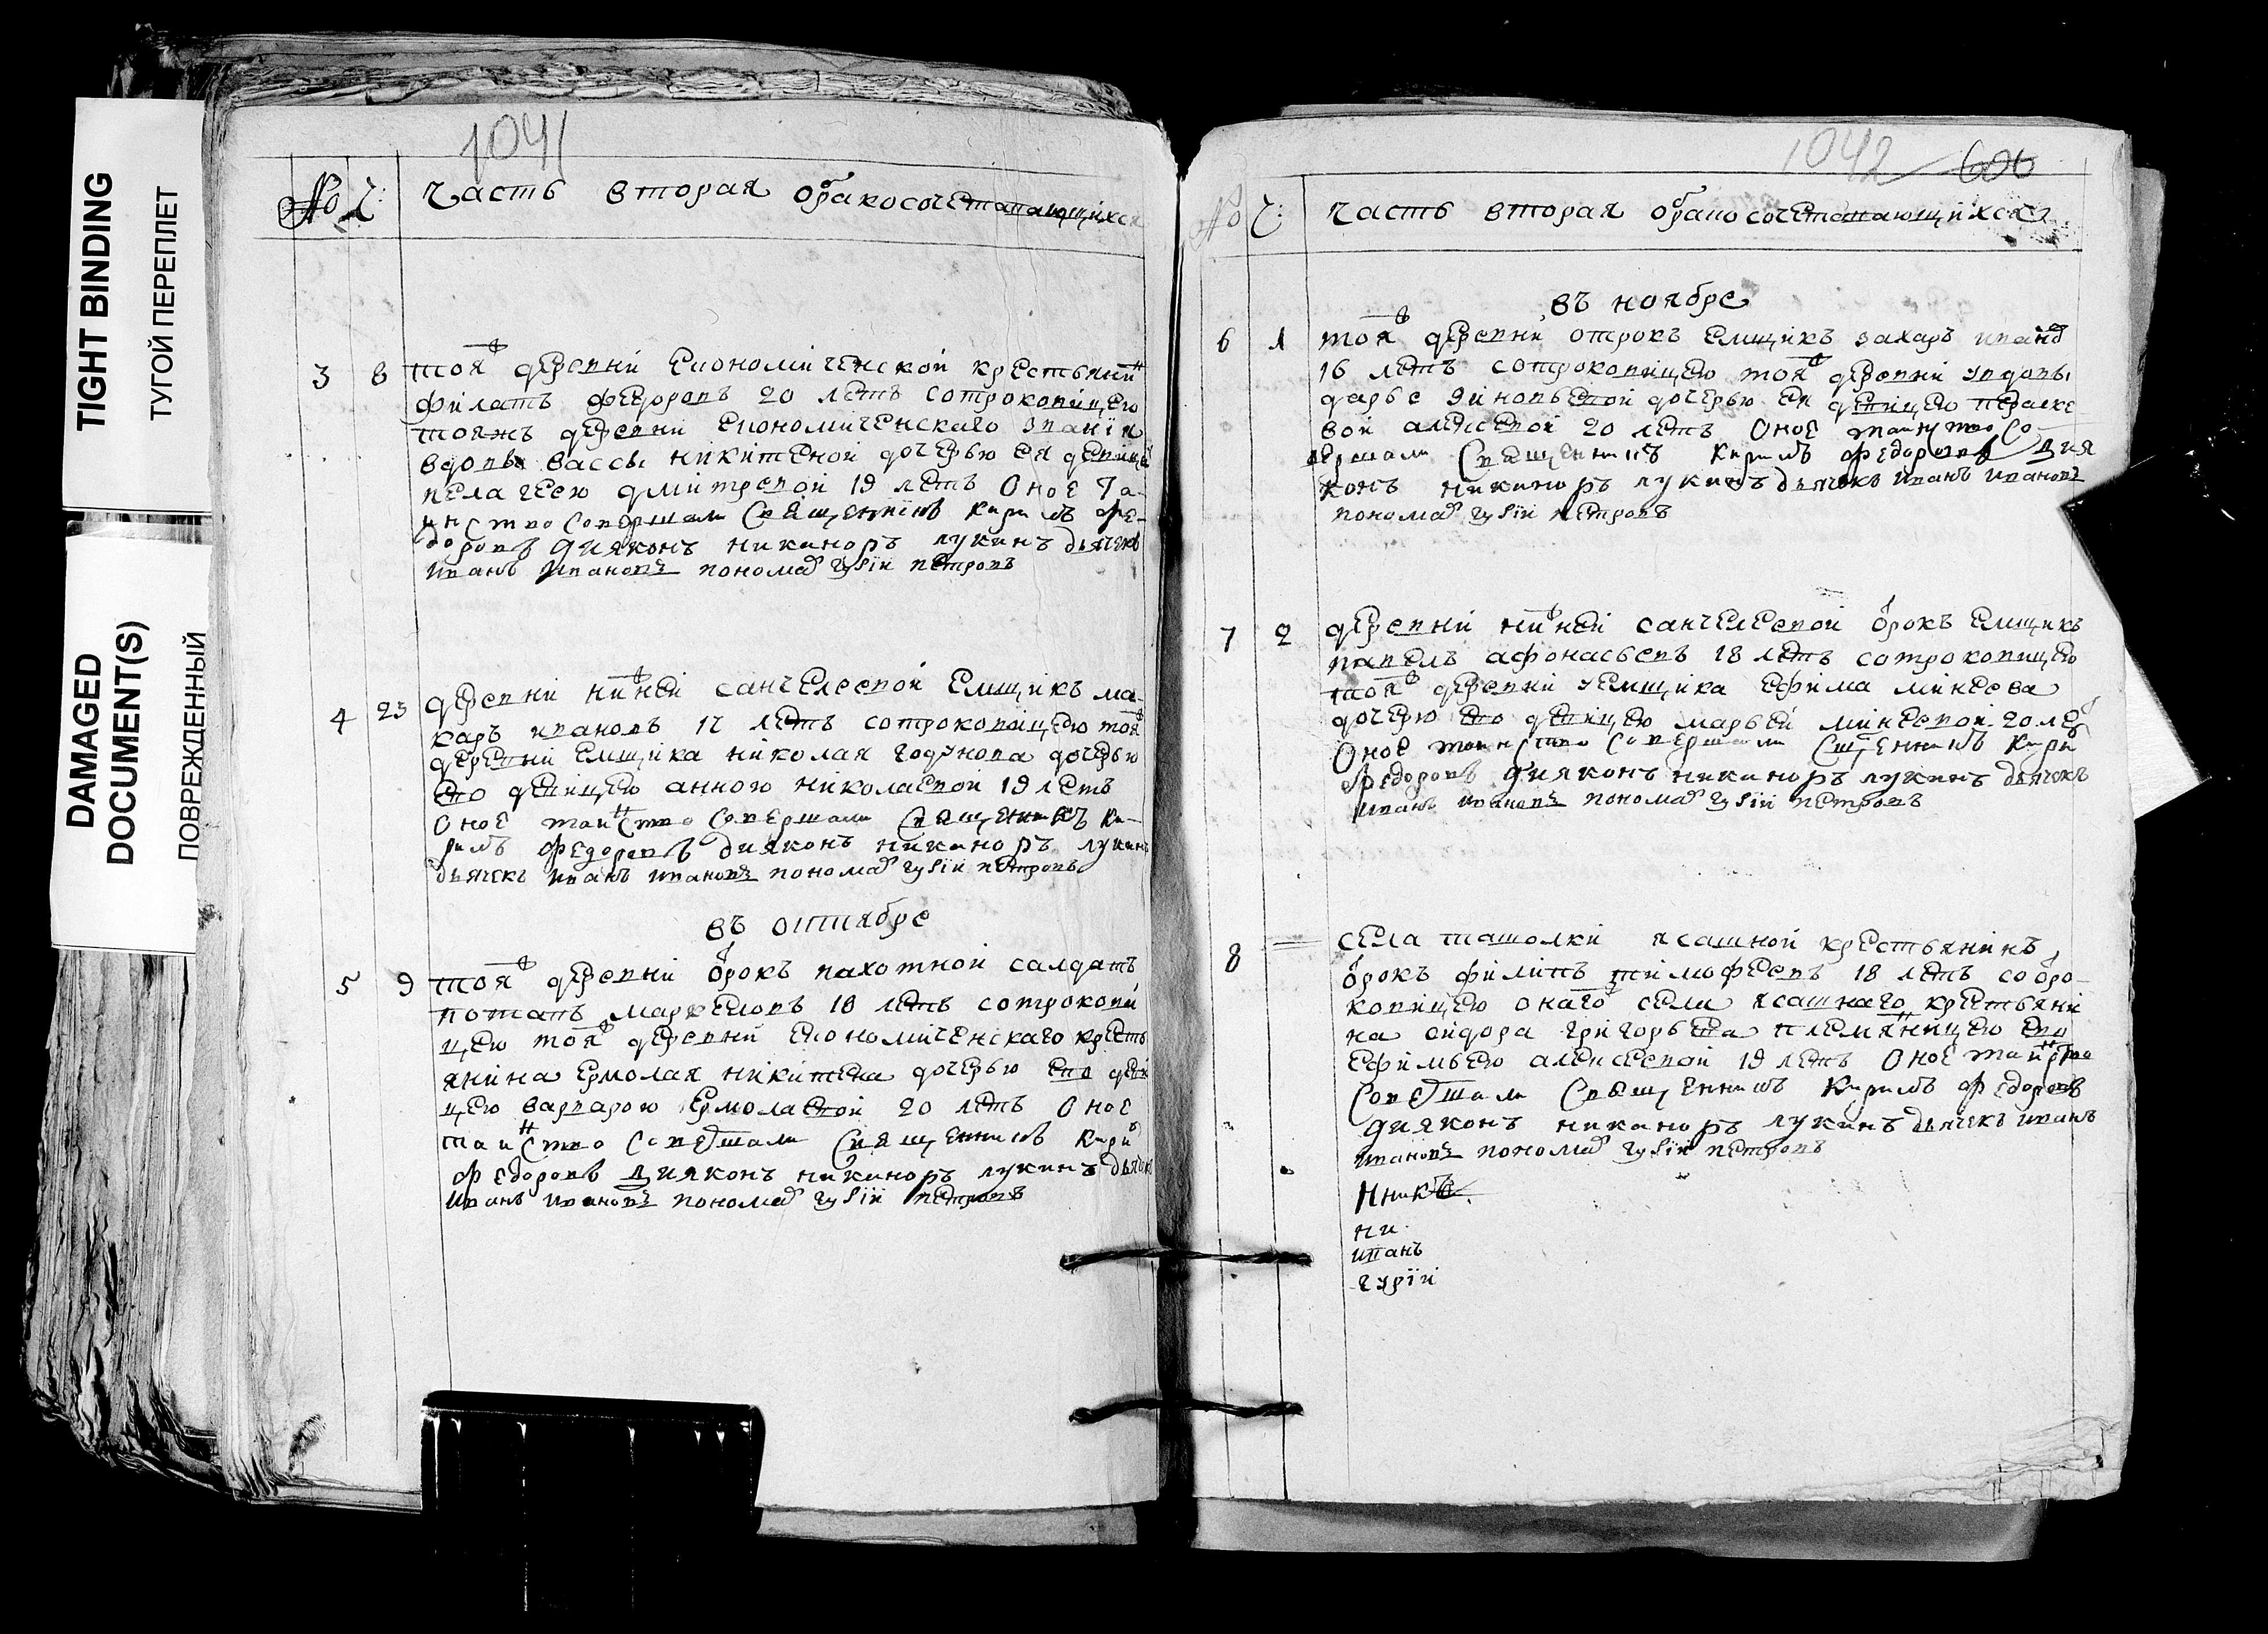 TIGHT BINDING
ТУГОЙ ПЕРЕПЛЕТ
DAMAGED
DOCUMENT(S)
ПОВРЕЖДЕННЫЙ
1041
№ Ч: часть вторая обракосочетавающихся
3 8 тояж деревни економической крестьянин
филатъ федоровъ 20 летъ сотроковицею
тояжъ деревни економическаго звания
вдовы вассы никитеной дочерью ея девицей
пелагеею дмитревой 19 летъ Оное Та-
инство Совершали Священникъ Кирилъ Фе-
доровъ дияконъ никаноръ лукинъ дьячекъ
иванъ ивановъ пономар гурїи петровъ
4 23 деревни нижней санчелеевой емщикъ ма-
каръ ивановъ 17 летъ сотроковицею тояж
деревни емщика николая годунова дочерью
ево девицею анною николаевой 19 летъ
Оное таинство Совершали Священникъ Ки-
рилъ Федоровъ диаконъ никаноръ лукинъ
дьячекъ иванъ ивановъ пономар гурїи петровъ
въ октябре
5 9 тояж деревни отрокъ пахотной салдатъ
потапъ маркеловъ 18 летъ сотрокови
цею тояж деревни економическаго кресть
янина ермолая никитева дочерью ево деви
цею варварою ермолаевой 20 летъ Оное
таинство Совершали Священникъ Кирил
Федоровъ диаконъ никаноръ лукинъ дьячекъ
иванъ ивановъ пономар гурїи петровъ
1042 606
№ Ч: часть вторая обракосочетавающихся
въ ноябре
6 1 тояж деревни отрокъ емщикъ захаръ иванов
16 летъ сотроковицею тояж деревни увдовы
дарье зиновьевой дочерью ея девицею параске
вой алексевой 20 летъ Оное таинство Со-
вершали Священникъ Кирилъ Федоровъ дия
конъ никаноръ лукинъ дьячекъ иванъ ивановъ
пономар гурїи петровъ
7 2 деревни нижней санчелеевой отрокъ емщикъ
павелъ афонасьевъ 18 летъ сотроковицею
тояж деревни уемщика ефима минеева
дочерю ево девицею марьей минеевой 20 лет
Оное таинство Совершали Сщенникъ Кирил
Федоровъ диаконъ никаноръ лукинъ дьячекъ
иванъ ивановъ пономар гурїи петровъ
8 села ташолки ясашной крестьянинъ
отрокъ филипъ тимофеевъ 18 летъ соотро-
ковицею онаго села ясашнаго крестьяни
на сидора григорьева племянницею ево
ефимьею алексеевой 19 летъ Оное таинство
Совершали Священникъ Кирилъ Федоровъ
диаконъ никаноръ лукинъ дьячекъ иванъ
ивановъ пономар гурїи петровъ
нникъ
ни
иванъ
гурїи